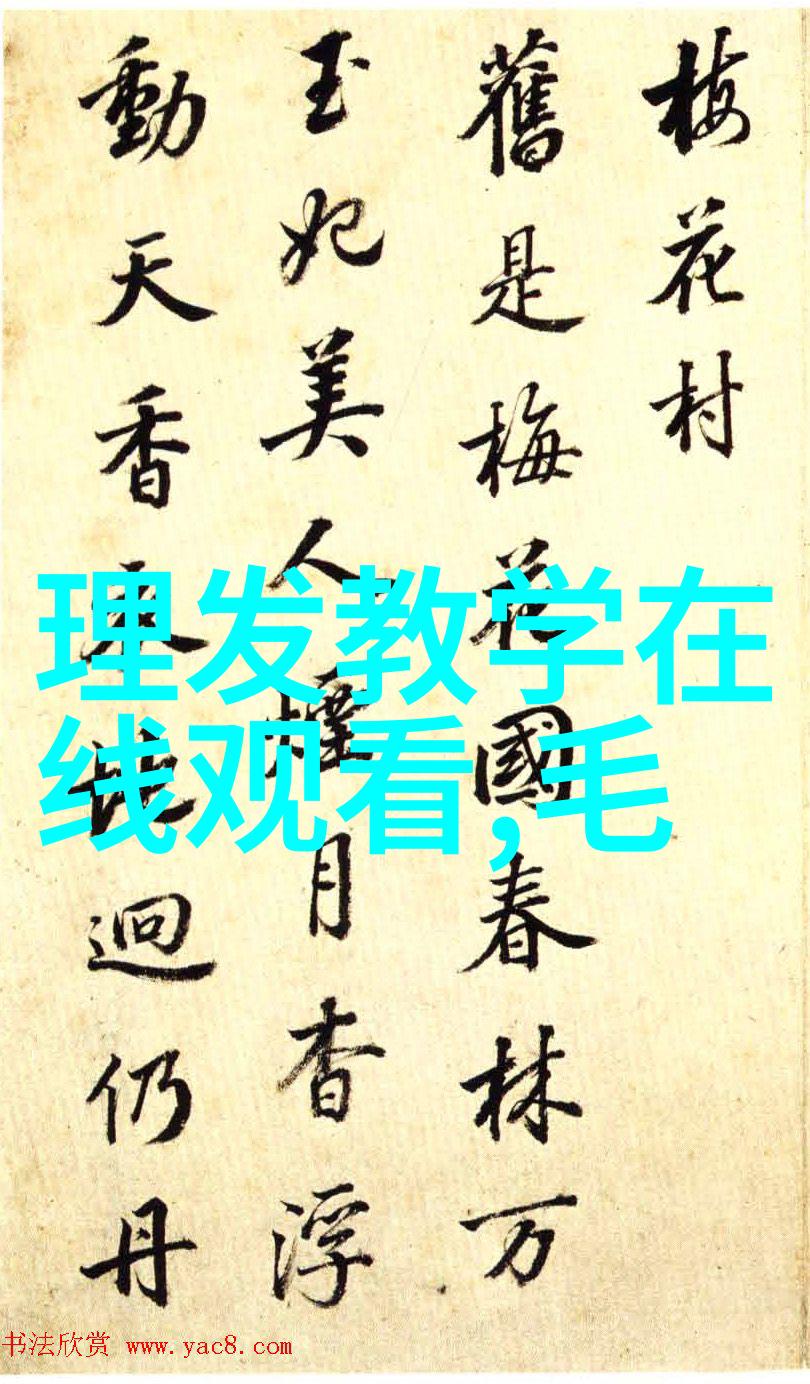 梅花村
舊是梅花國春林万
玉妃美人煙月香浮
動天香來迥仍丹
理发教学在
线观看,毛
书法欣赏 www.yac8.com